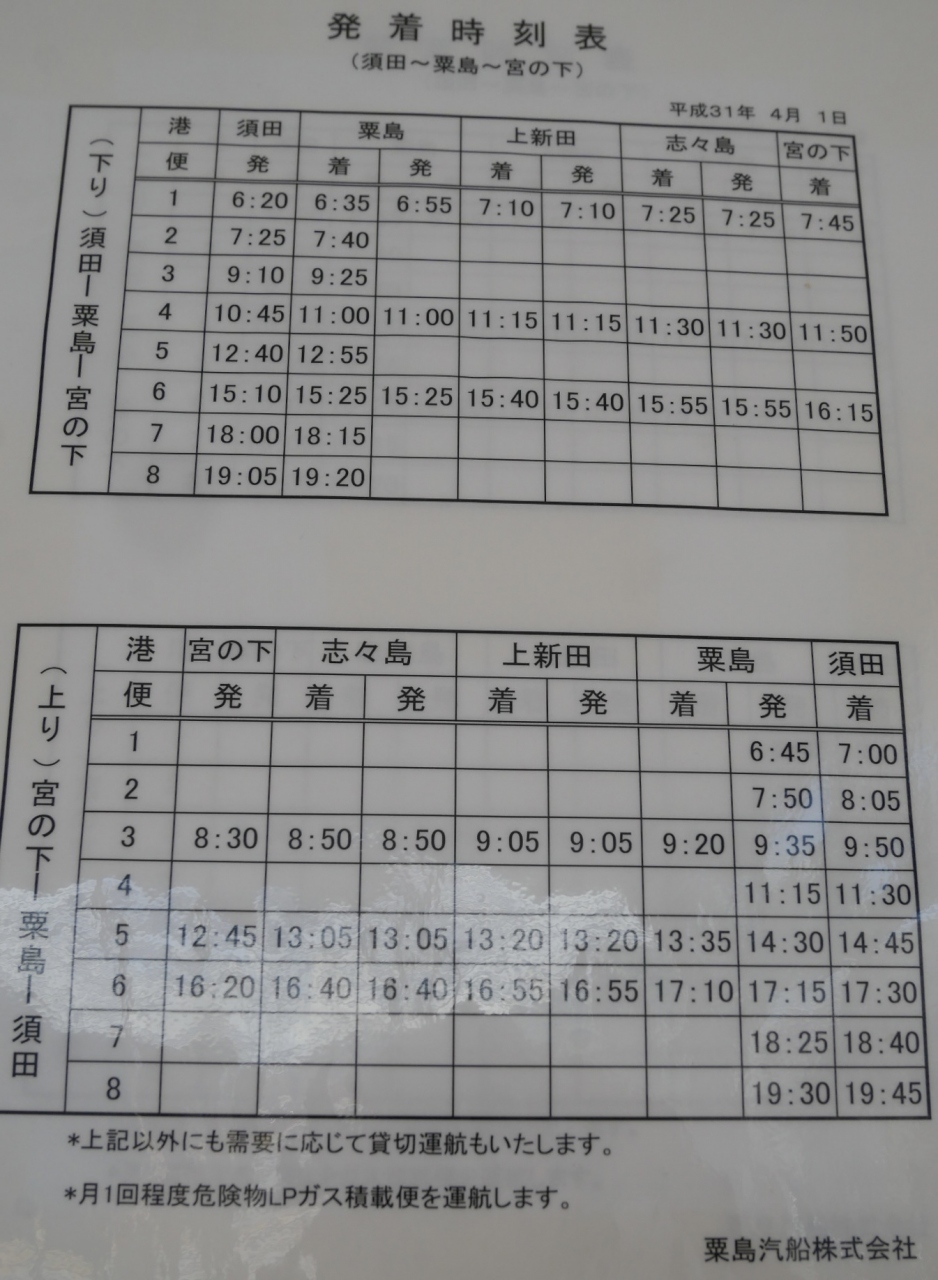 発着時刻表
(須田～粟島～宮の下)
平成31年 4月 1日
(下り)須田ー粟島ー宮の下
港 須田 粟島 上新田 志々島 宮の下
便 発 着 発 着 発 着 発 着
1 6:20 6:35 6:55 7:10 7:10 7:25 7:25 7:45
2 7:25 7:40
3 9:10 9:25
4 10:45 11:00 11:00 11:15 11:15 11:30 11:30 11:50
5 12:40 12:55
6 15:10 15:25 15:25 15:40 15:40 15:55 15:55 16:15
7 18:00 18:15
8 19:05 19:20
(上り)宮の下ー粟島ー須田
港 宮の下 志々島 上新田 粟島 須田
便 発 着 発 着 発 着 発 着
1 6:45 7:00
2 7:50 8:05
3 8:30 8:50 8:50 9:05 9:05 9:20 9:35 9:50
4 11:15 11:30
5 12:45 13:05 13:05 13:20 13:20 13:35 14:30 14:45
6 16:20 16:40 16:40 16:55 16:55 17:10 17:15 17:30
7 18:25 18:40
8 19:30 19:45
*上記以外にも需要に応じて貸切運航もいたします。
*月1回程度危険物LPガス積載便を運航します。
粟島汽船株式会社